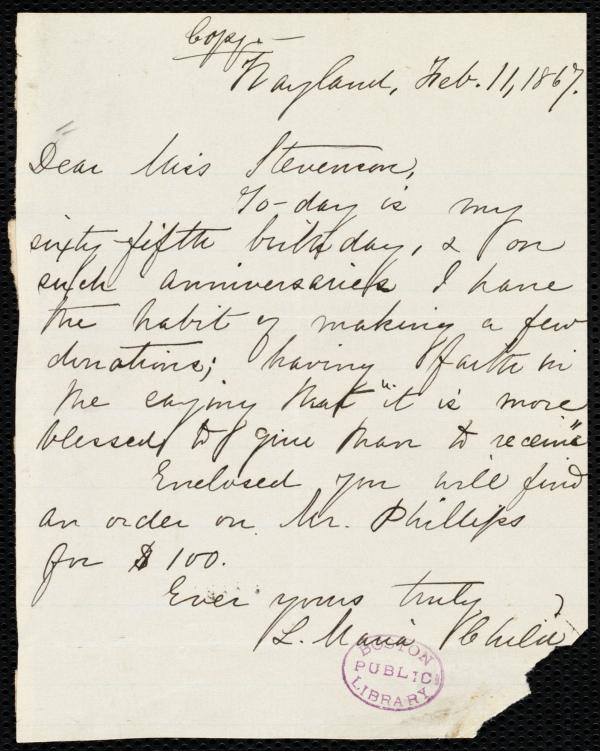 Copy.—
Wayland, Feb. 11, 1867.
Dear Miss Stevenson,
To-day is my
sixty-fifth birthday, & on
such anniversaries I have
the habit of making a few
donations; having faith in
the saying that "it is more
blessed to give than to receive"
Enclosed you will find
an order on Mr. Phillips
for $100.
Ever yours truly
L. Maria Child
BOSTON
PUBLIC
LIBRARY